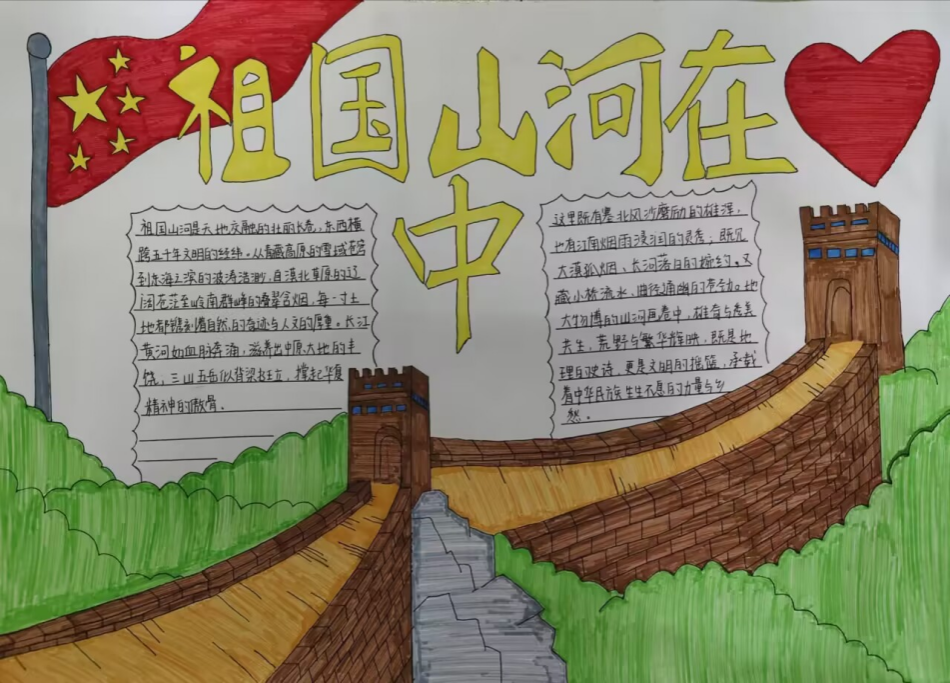 祖国山河在
中
祖国山河是天地交融的壮丽长卷，东西横
跨五千年文明的经纬。从青藏高原的雪域苍穹
到东海之滨的波涛浩渺，自漠北草原的辽
阔苍茫至岭南群峰的叠翠含烟，每一寸土
地都镌刻着自然的奇迹与人文的厚重。长江
黄河如血脉奔涌，滋养出中原大地的丰
饶，三山五岳似脊梁挺立，撑起华夏
精神的傲骨。
这里既有塞北风沙磨励的雄浑，
也有江南烟雨浸润的灵秀；既沉
大漠孤烟、长河落日的
藏小桥流水、曲径通幽的
大物博的山河画卷中，雄奇与柔美
共生，荒野与繁华辉映，既是地
理的史诗，更是文明的摇篮，承载
着中华民族生生不息的力量与乡
愁。